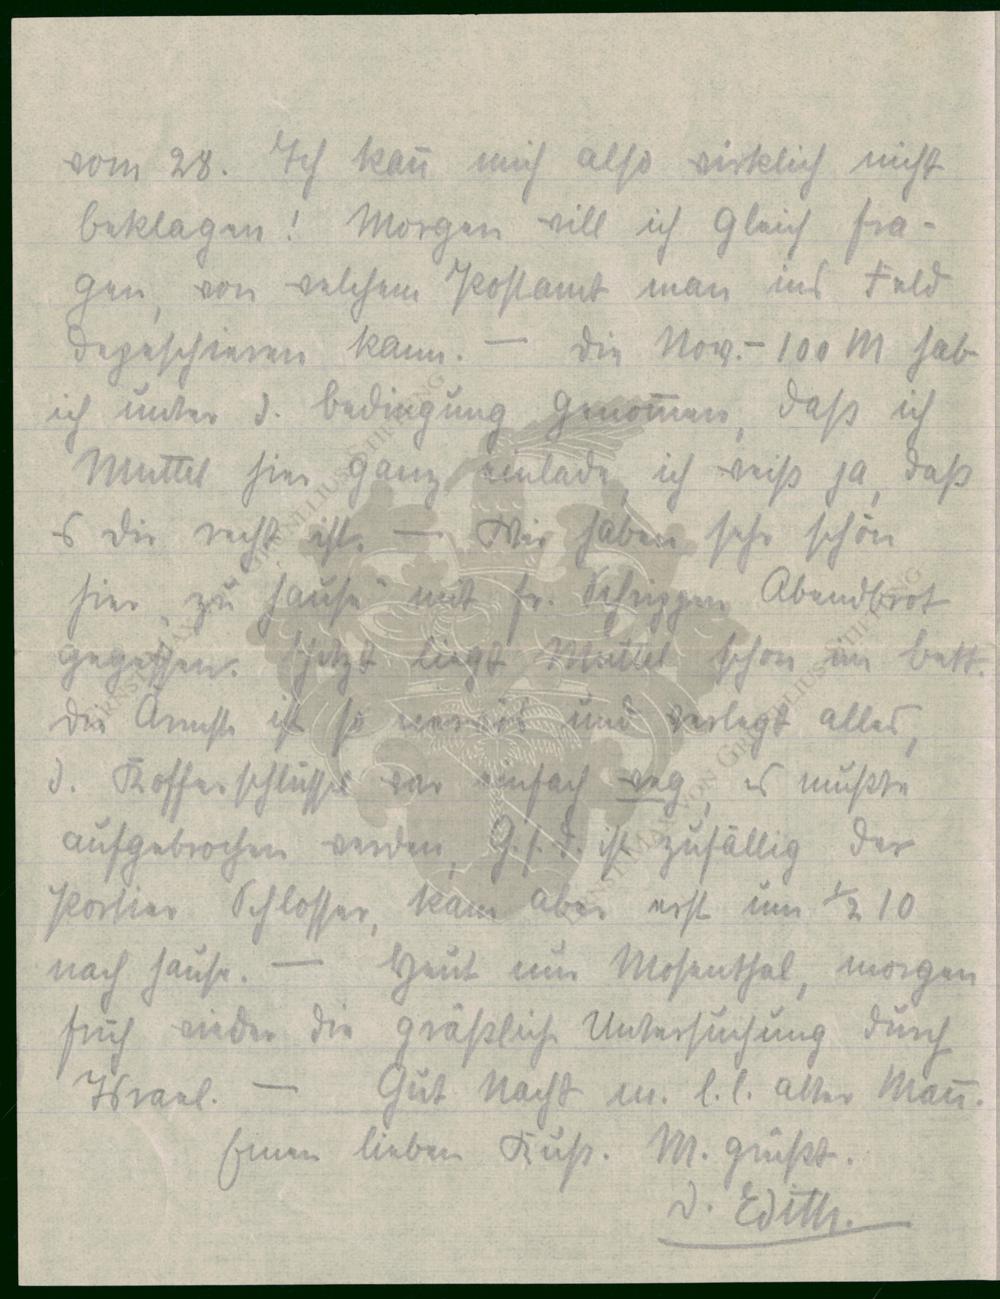 vom 28. Ich kan̅ mich also wirklich nicht
beklagen! Morgen will ich gleich fra-
gen, von welchem Postamt man ins Feld
depeschieren kann. — Die Nov.-100 M hab
ich unter d. Bedingung genom̅en, daß ich
Muttel hier ganz einlade, ich weiß ja, daß
es dir recht ist. — Wir haben sehr schön
hier „zu Hause" mit fr. Schrippen Abendbrot
gegessen. Jetzt liegt Muttel schon im Bett.
Die Ärmste ist so nervös und verlegt alles,
d. Kofferschlüssel war einfach weg, er mußte
aufgebrochen werden, G. s. d. ist zufällig der
Portier Schlosser, kam aber erst um ½ 10
nach Hause. — Heut nur Mosenthal, morgen
früh wieder die gräßliche Untersuchung durch
Israel. — Gut Nacht m. l. l. alter Man̅.
Einen lieben Kuß. M. grüßt.
D. Edith.
ERNST MAX VON GRUNELIUS-STIFTUNG
ERNST MAX VON GRUNELIUS-STIFTUNG